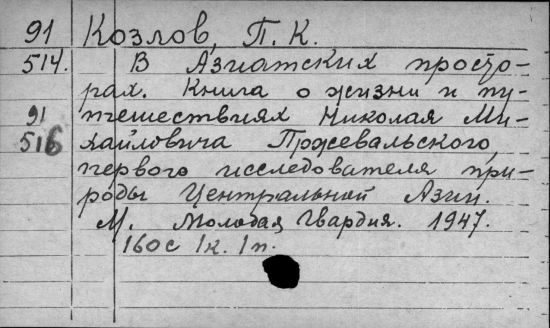 91 Козлов, П. К.
514. В Азиатских просто-
рах. Книга о жизни и пу-
91 тешествиях Николая Ми-
516 хайловича Пржевальского,
первого исследователя при-
роды Центральной Азии.
М. Молодая Гвардия. 1947.
160с 1к. 1п.